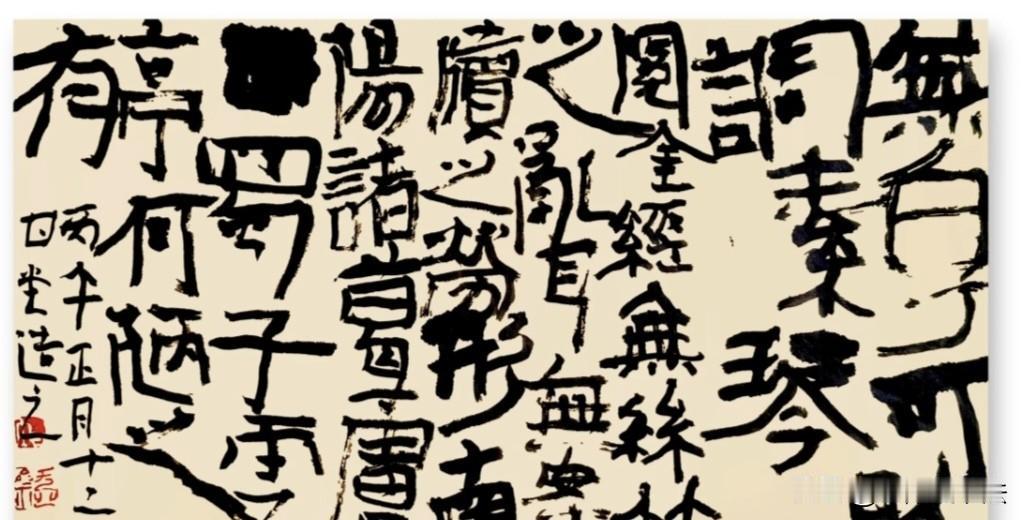 無白丁可
調素琴
閱金經無絲竹
之亂耳無案
牘之勞形南
陽諸葛廬
蜀子雲
亭何陋之
有
丙午正月十二
甘堂造之